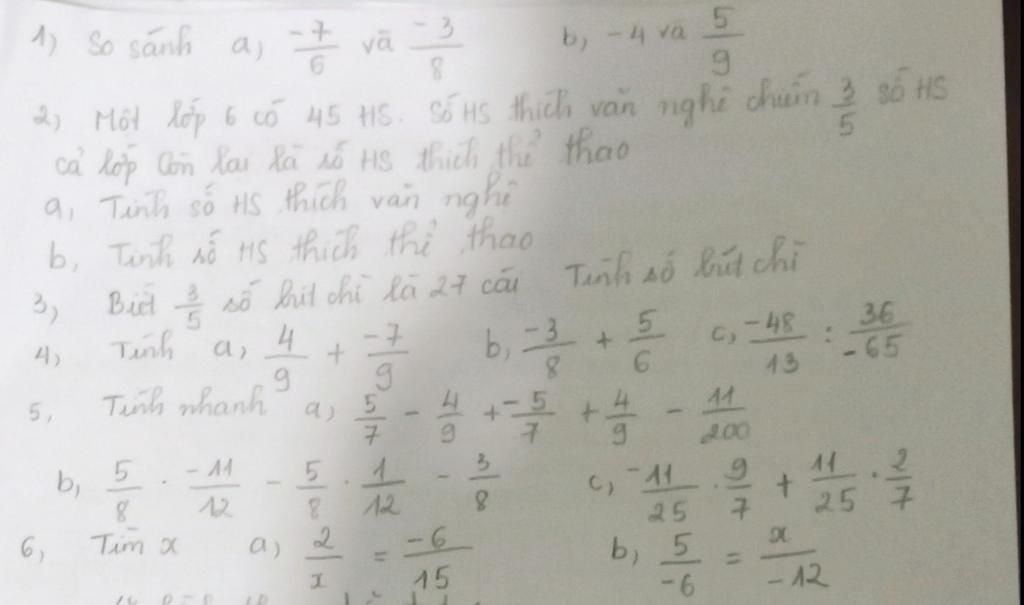 1) So sánh a) \frac{-7}{6} và \frac{-3}{8} b, -4 và \frac{5}{9}
2) Một lớp 6 có 45 HS. Số HS thích văn nghệ chiếm \frac{3}{5} số HS
cả lớp Còn lại là số HS thích thể thao
a, Tính số HS thích văn nghệ
b, Tính số HS thích thể thao
3, Biết \frac{3}{5} số bút chì là 27 cái Tính số bút chì
4, Tính a, \frac{4}{9} + \frac{-7}{9} b, \frac{-3}{8} + \frac{5}{6} c, \frac{-48}{13} : \frac{36}{-65}
5, Tính nhanh a) \frac{5}{7} - \frac{4}{9} + \frac{-5}{7} + \frac{4}{9} - \frac{11}{200}
b, \frac{5}{8} . \frac{-11}{12} - \frac{5}{8} . \frac{1}{12} - \frac{3}{8} c, \frac{-11}{25} . \frac{9}{7} + \frac{11}{25} . \frac{2}{7}
6, Tìm x a) \frac{2}{x} = \frac{-6}{15} b, \frac{5}{-6} = \frac{x}{-12}